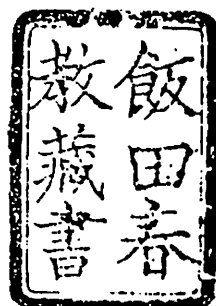 飯田春
教藏書